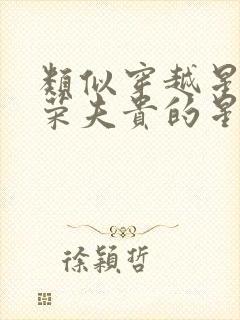 類似穿越星
荣夫貴的星
徐穎哲